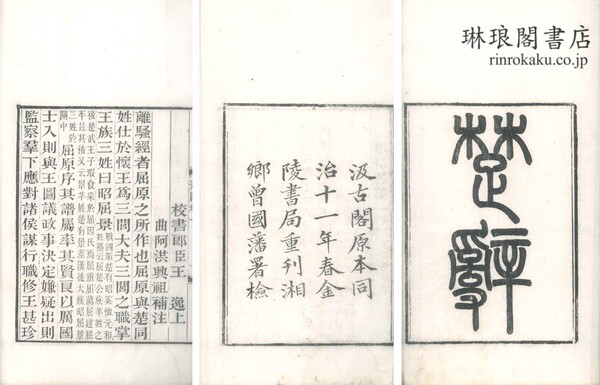 琳琅閣書店
rinrokaku.co.jp
楚辭
汲古閣原本同
治十一年春金
陵書局重刊湘
鄉曾國藩署檢
校書郎臣王 逸上
曲阿洪興祖補注
離騷經者屈原之所作也屈原與楚同
姓仕於懷王爲三閭大夫三閭之職掌
王族三姓曰昭屈景
屈原序其譜屬率其賢良以厲國
士入則與王圖議政事決定嫌疑出則
監察羣下應對諸侯謀行職修王甚珍